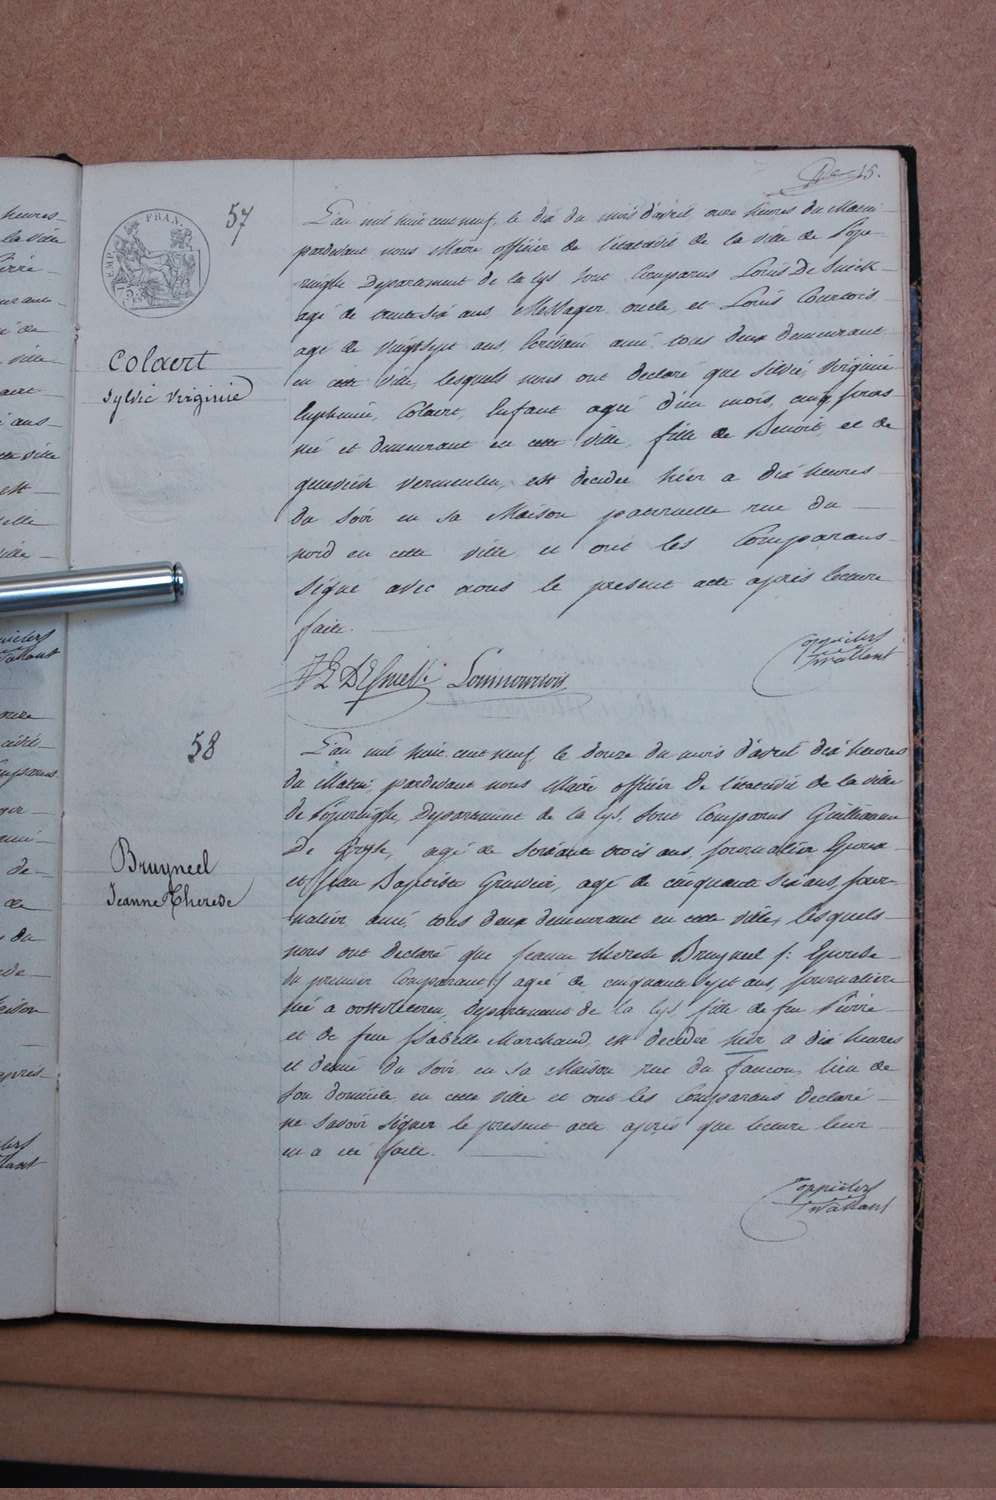 15.
57
EMP. FRAN.
Colaert
Sylvie Virginie
L'an mil huit cent neuf, le dix du mois d'avril onze heures du Matin
pardevant nous Maire officier de l'état civil de la ville de Pope-
ringhe Departement de la Lys Sont Comparus Louis De
agé de trente six ans Messager, oncle, et Louis Courtois
agé de vingt sept ans Ecrivain ami, tous deux demeurant
en cette ville, lesquels nous ont declaré que Silvie, Virginie
Euphemie, Colaert, Enfant agé d'un mois, cinq jours
né et demeurant en cette ville, fille de Benoit, et de
genevieve Vermeulen, est decedée hier a dix heures
du Soir en sa Maison paternelle rue du
nord en cette ville et ont les Comparans
Signé avec nous le present acte après lecture
faite.
58
Bruyneel
Jeanne Therese
L'an mil huit cent neuf le douze du mois d'avril dix heures
du Matin, pardevant nous Maire officier de l'état civil de la ville
de Poperinghe, Departement de la Lys, Sont Comparus Guilliaume
De agé de soixante trois ans, journalier Epoux
et Jean Baptiste agé de cinquante six ans, jour-
nalier ami, tous deux demeurant en cette ville, lesquels
nous ont declaré que Jeanne therese Bruyneel f: Epouse
du premier Comparant agé de cinquante sept ans, journaliere
né a oostvleteren, departement de la Lys, fille de feu Pierre
et de feue Isabelle Marchand, est decedée hier a dix heures
et demie du Soir en sa Maison rue du faucon, lieu de
son domicile en cette ville et ont les Comparans declaré
ne savoir signer le present acte après que lecture leur
en a été faite.